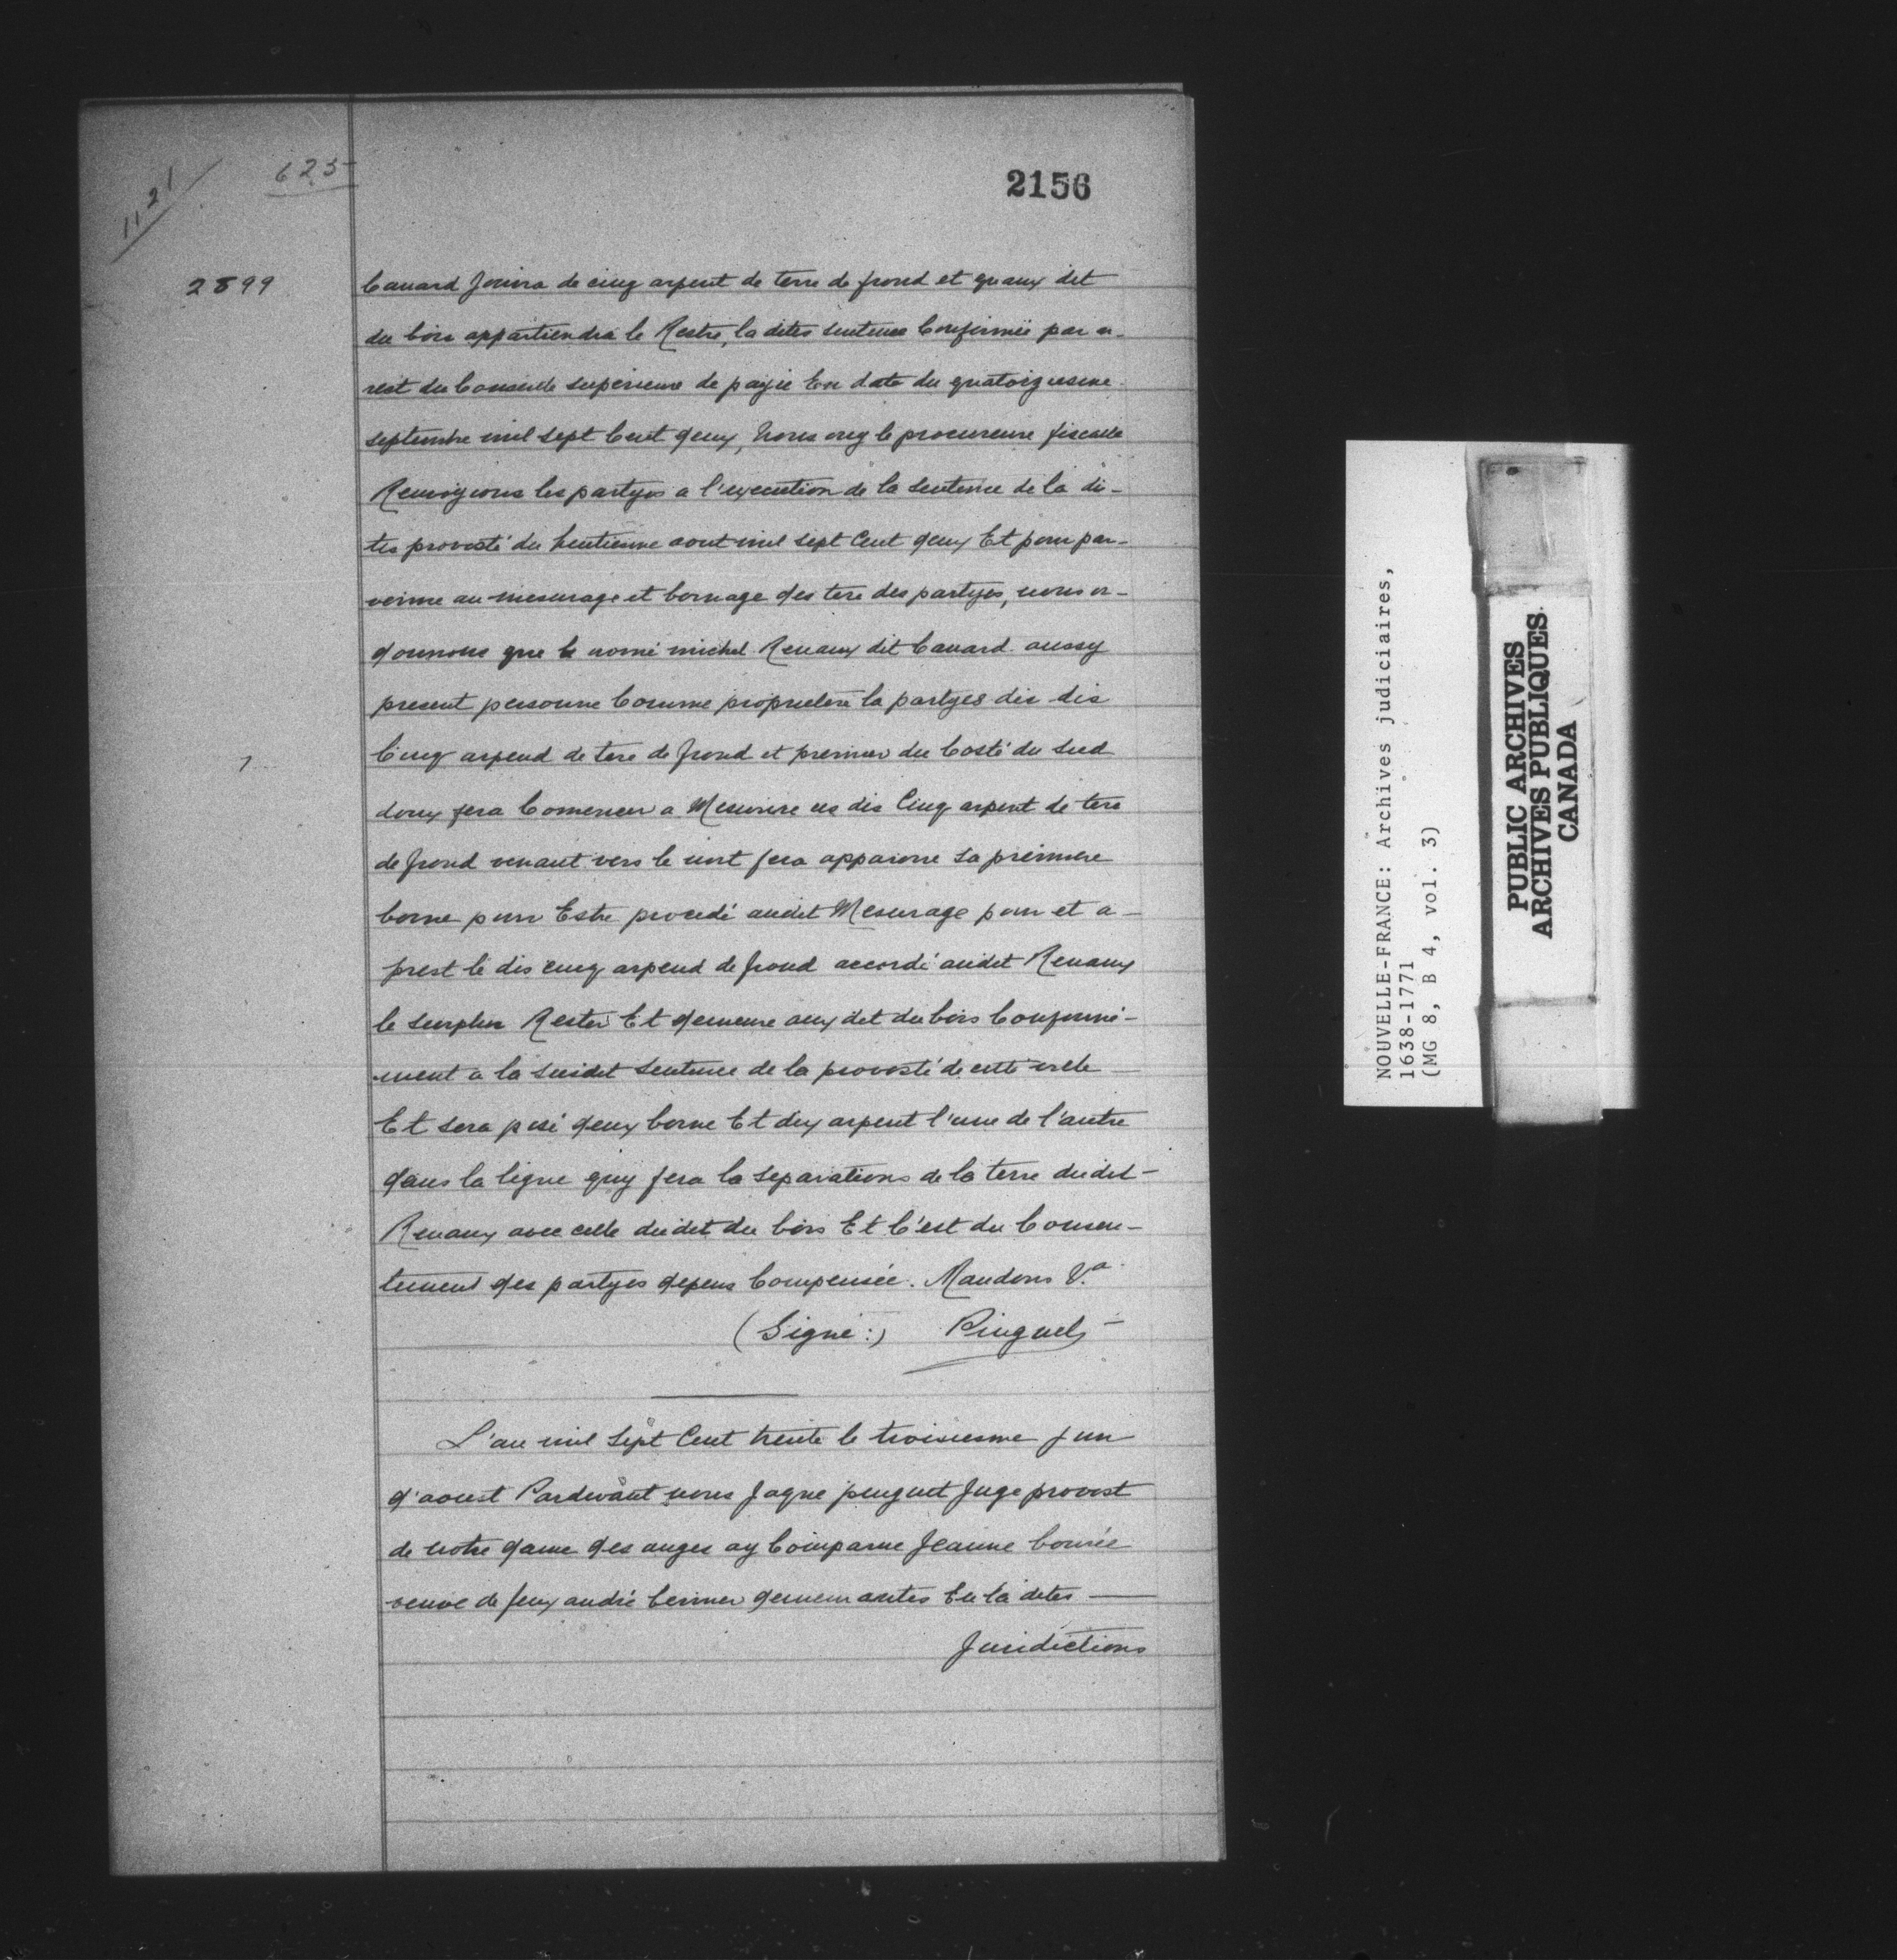 1121
625
2156
2899
Canard Jouira de cinq arpent de terre de frond et quaux dit
du bois appartiendra le Restre, la dites sentence Confirmée par a-
rest du Conseille superieure de payie En date du quatorziesme
septembre mil sept Cent deux, Nous ouy le procureure fiscalle
Renvoyions les partyes a l'execution de la sentence de la di-
tes provosté du hentienne aout mil sept Cent deux Et pour par-
venire au mesurage et bornage des tere des partyes, nous or-
donnons que le nomé michel Renaux dit Canard aussy
present personne Comme proprietere la partyes des dis
Cinq arpend de tere de frond et premier du Costé du Sud
doux sera Comencer a Mesurire ces dis Cinq arpent de tere
de frond venant vers le nort sera apparoire sa premiere
borne pour Estre procedé audit Mesurage pour et a-
prest lé dis cinq arpend de frond accordé audit Renaux
le surplus Rester Et demeure aux dit du bois Conformé-
ment a la susdit sentence de la provosté de cette viele
Et sera posé deux borne Et dux arpent l'une de l'autre
dans la ligne quy fera la separations de la terre dudit
Renaux avec celle dudit du bois Et C'est du Consen-
tement des partyes depens Compensée. Mandons &.a
(Signé:) Pinguet
L'an mil Sept Cent trente le troisiesme jun
d'aoust Pardevant nous Jaque penguet Juge provost
de notre dame des anges ay Comparue Jeanne bourée
veuve de feux andré bernier demeurantes En la dites
Juridictions
NOUVELLE-FRANCE: Archives judiciaires,
1638-1771
(MG 8, B 4, vol. 3)
PUBLIC ARCHIVES
ARCHIVES PUBLIQUES
CANADA